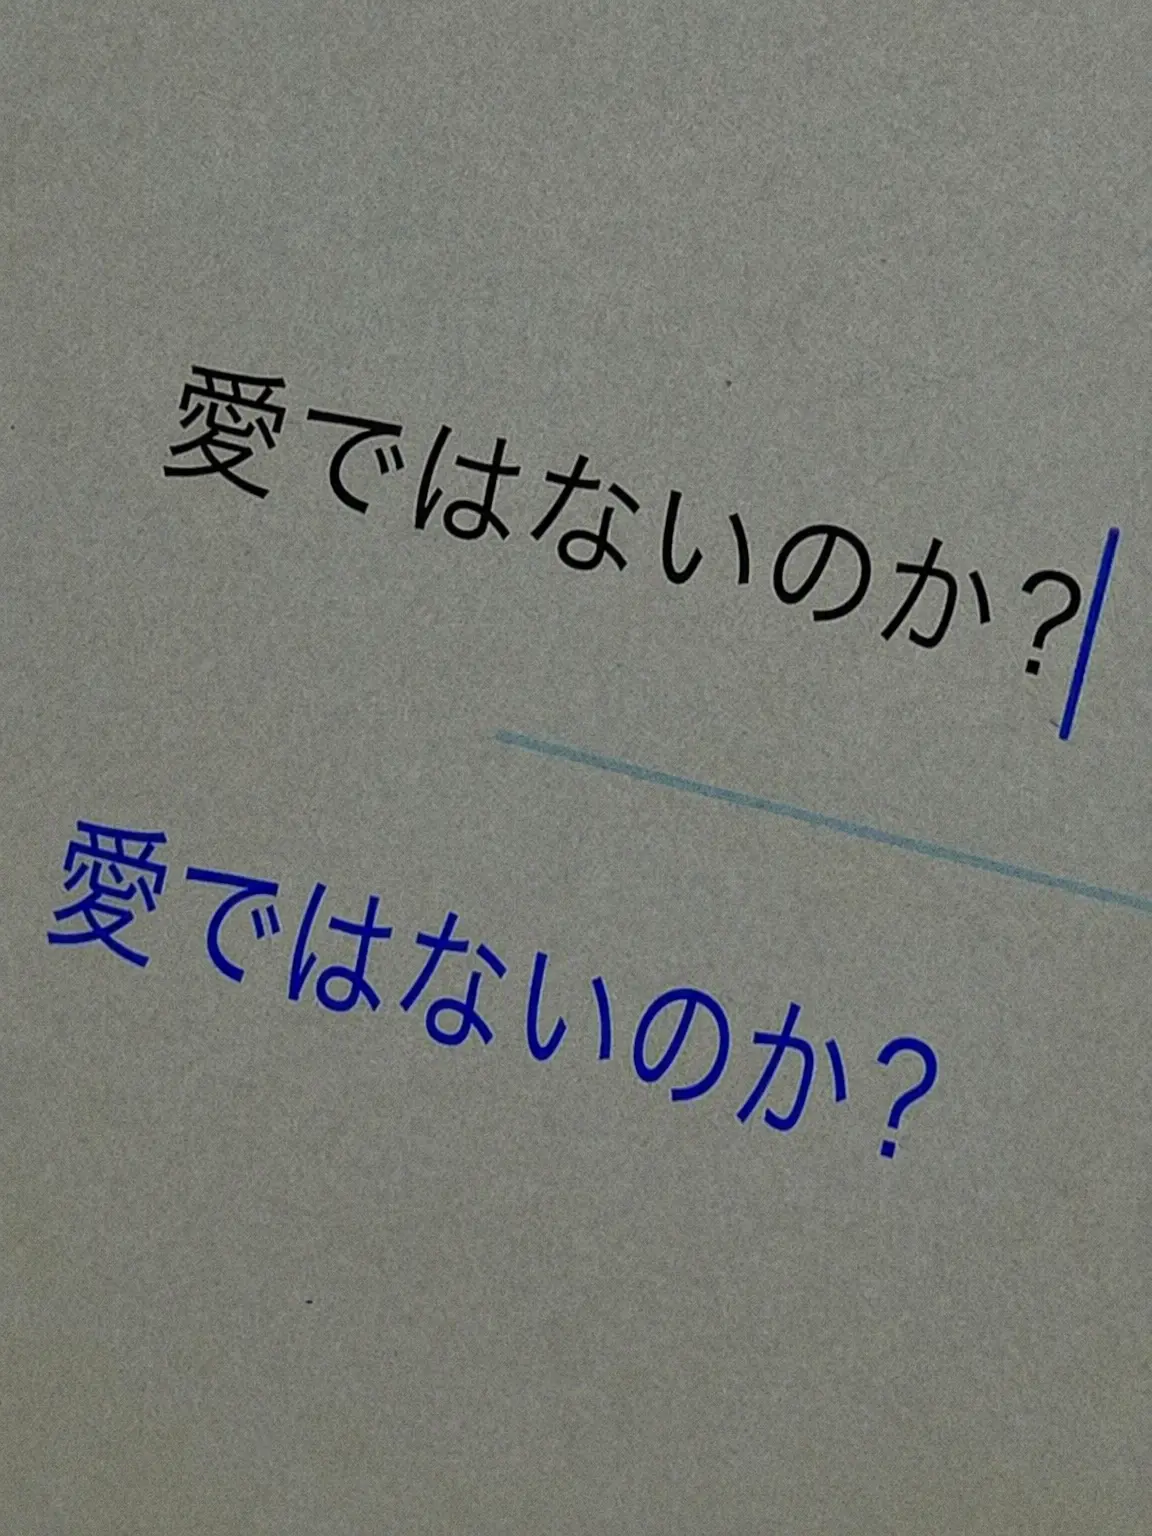 愛ではないのか?
愛ではないのか?